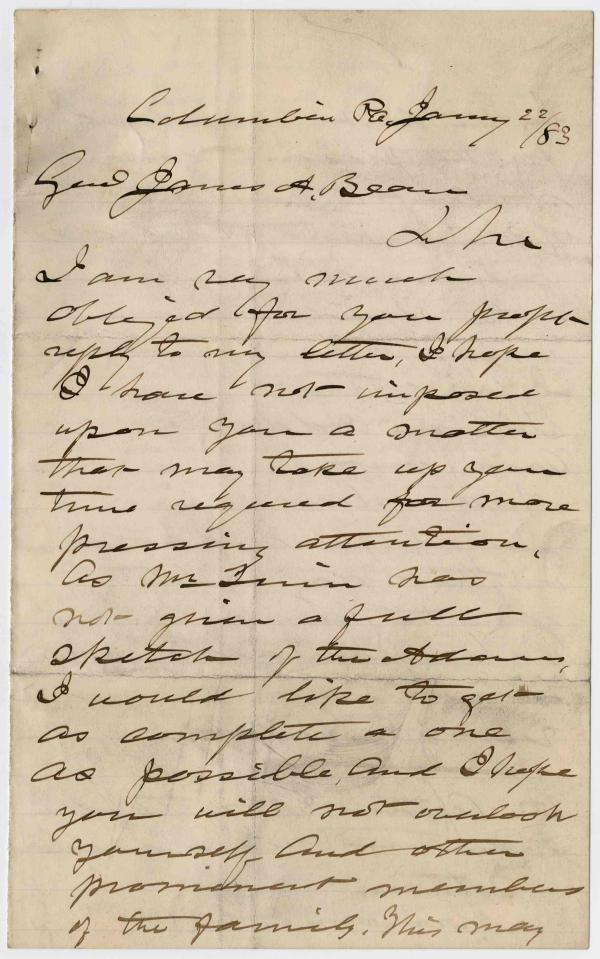 Columbia Pa. Jany 22/83
Genl James A. Beaver
I am very much
obliged for your prompt
reply to my letter, I hope
I have not imposed
upon you a matter
that may take up your
time required for more
pressing attention,
As Mr has
not given a full
sketch of the Adams,
I would like to get
as complete a one
as possible, and I hope
you will not overlook
yourself and other
prominent members
of the family. This may